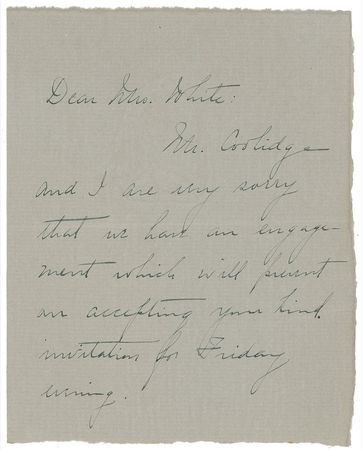 Dear Mrs. White:
Mr. Coolidge
and I are very sorry
that we have an engage-
ment which will prevent
our accepting your kind
invitation for Friday
evening.